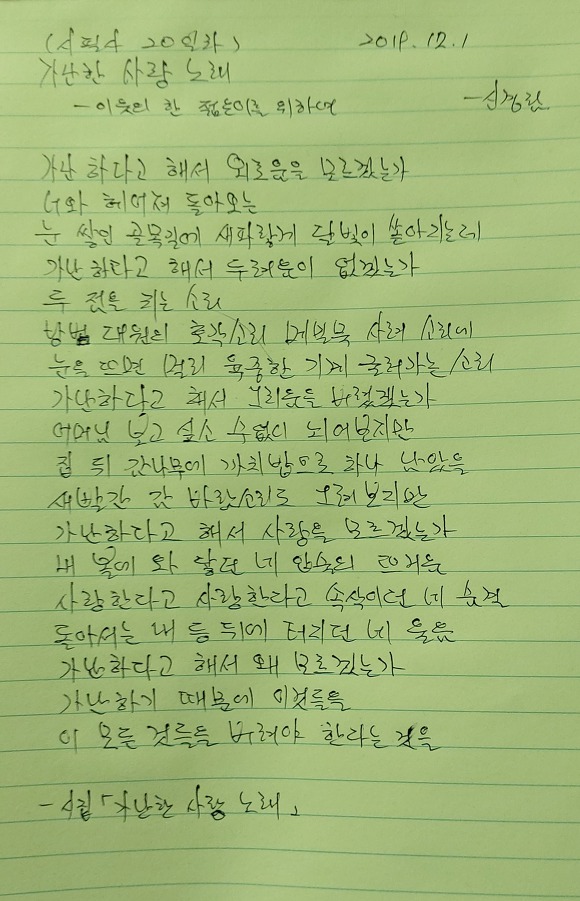 (시필사 20일차) 2019. 12. 1
가난한 사랑 노래
- 이웃의 한 젊은이를 위하여 - 신경림
가난하다고 해서 외로움을 모르겠는가
너와 헤어져 돌아오는
눈 쌓인 골목길에 새파랗게 달빛이 쏟아지는데
가난하다고 해서 두려움이 없겠는가
두 점을 치는 소리
방범 대원의 호각소리 메밀묵 사려 소리에
눈을 뜨면 멀리 육중한 기계 굴러가는 소리
가난하다고 해서 그리움을 버렸겠는가
어머님 보고 싶소 수없이 뇌어보지만
집 뒤 감나무에 까치밥으로 하나 남았을
새빨간 감 바람소리도 그려보지만
가난하다고 해서 사랑을 모르겠는가
내 볼에 와 닿던 네 입술의 뜨거움
사랑한다고 사랑한다고 속삭이던 네 숨결
돌아서는 내 등 뒤에 터지던 네 울음
가난하다고 해서 왜 모르겠는가
가난하기 때문에 이것들을
이 모든 것들을 버려야 한다는 것을
- 시집 「가난한 사랑 노래」